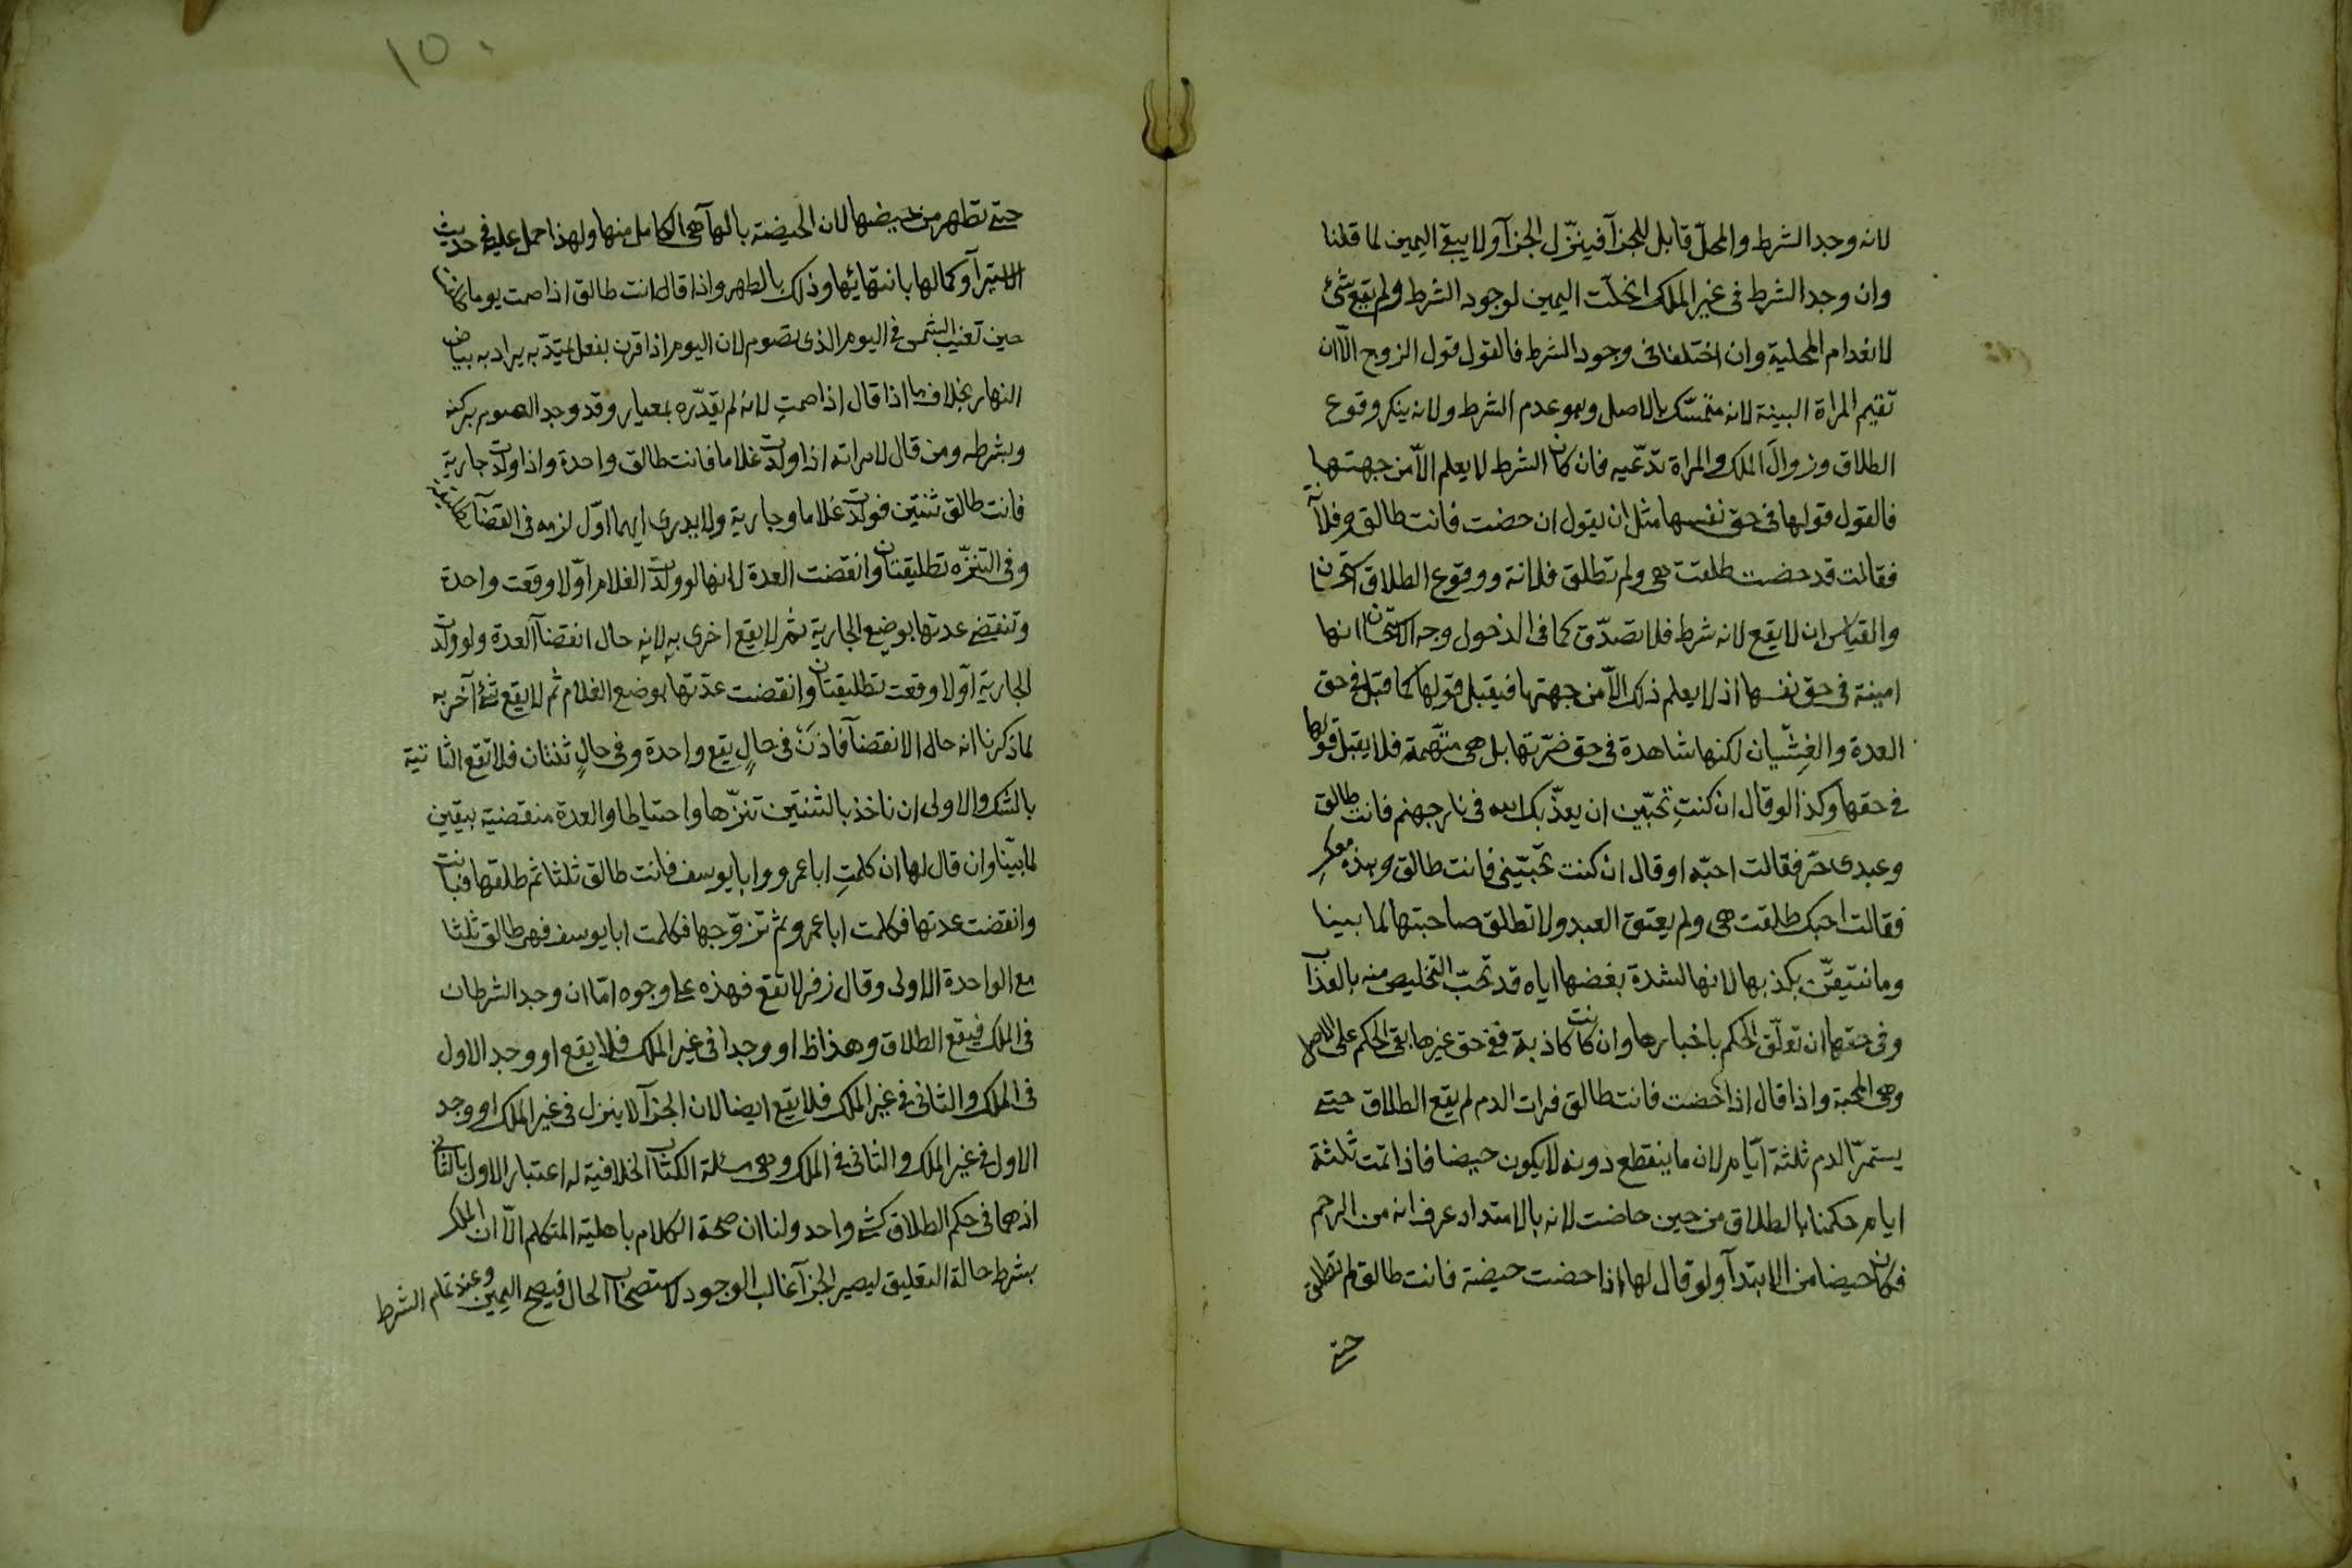 لانه وجد الشرط والمحلّ قابل للجزآ فينزّل الجزآ ولا يبقى اليمين لما قلنا
وان وجد الشرط فى غير الملك انحلّت اليمين لوجود الشرط ولم يقع شئ
لانعدام المحلية وان اختلفا فى وجود الشرط فالقول قول الزوج الّا ان
تقيم المراة البينة لانه متمسّك بالاصل وهو عدم الشرط ولانه ينكر وقوع
الطلاق وزوال الملك والمراة تدّعيه فان كان الشرط لا يعلم الاّ من جهتها
فالقول قولها فى حق نفسها مثل ان يقول ان حضت فانت طالق وفلانة
فقالت قد حضت طلقت هى ولم تطلق فلانة ووقوع الطلاق استحسان
والقياس ان لا يقع لانه شرط فلا تصدّق كما فى الدخول وجه الاستحسان انها
امينة فى حق نفسها اذ لا يعلم ذلك الاّ من جهتها فيقبل قولها كما قبل فى حق
العدة والغِشّيان لكنها شاهدة فى حق ضرّتها بل هى متّهمة فلا يقبل قولها
فى حقها وكذا لو قال ان كنتِ تحبّين ان يعذّبك الله فى نار جهنم فانت طالق
وعبدى حرّ فقالت احبّه او قال ان كنت تحبّينى فانت طالق وهذه معكِ
فقالت احبك طلقت هى ولم يعتق العبد ولا تطلق صاحبتها لما بينا
وما نتيقّن بكذبها لانها لشدة بغضها اياه قد تحبّ التخليص منه بالعذاب
وفى حقها ان تعلّق الحكم باخبارها وان كانت كاذبة ففى حق غيرها بقى الحكم على الاصل
وهى المحبة واذا قال اذا حضت فانت طالق فرات الدم لم يقع الطلاق حتى
يستمرّ الدم ثلثة ايّام لان ما ينقطع دونه لا يكون حيضا فاذا تمّت ثلثة
ايام حكمنا بالطلاق من حين حاضت لانه بالامتداد عرف انه من الرحم
فكان حيضا من الابتدآ ولو قال لها اذا حضت حيضة فانت طالق لم تطلق
حتى
١٥٠
حتى تطهر من حيضها لان الحيضة بالهآ هى الكامل منها ولهذا حمل عليه فى حديث
الاستبرآ وكمالها بانتهائها وذلك بالطهر واذا قال انت طالق اذا صمت يوما
حين تغيب الشمس فى اليوم الذى تصوم لان اليوم اذا قرن بفعل يمتدّ به يراد به بياض
النهار بخلاف ما اذا قال اذا صمتِ لانه لم يقدّره بمعيار وقد وجد الصوم بركنه
وبشرطه ومن قال لامراته اذا ولدت غلاما فانت طالق واحدة واذا ولدت جارية
فانت طالق ثنتين فولدت غلاما وجارية ولا يدرى ايهما اوّل لزمه فى القضآ تطليقة
وفى التنزّه تطليقتان وانقضت العدة لانها لو ولدت الغلام اوّلا وقعت واحدة
وتنقضى عدتها بوضع الجارية ثم لا يقع اخرى به لانه حال انقضآ العدة ولو ولدت
الجارية اوّلا وقعت تطليقتان وانقضت عدّتها بوضع الغلام ثم لا يقع شئ آخر به
لما ذكرنا انه حال الانقضآ فاذن فى حالٍ يقع واحدة وفى حالٍ ثنتان فلا تقع الثانية
بالشك والاولى ان ناخذ بالثنتين تنزّها واحتياطا والعدة منقضية بيقين
لما بيّنا وان قال لها ان كلمتِ ابا عمرو وابا يوسف فانت طالق ثلثا ثم طلقها فبانت
وانقضت عدتها فكلمت ابا عمرو ثم تزوّجها فكلمت ابا يوسف فهى طالق ثلثا
مع الواحدة الاولى وقال زفر لا تقع فهذه على وجوه امّا ان وجد الشرطان
فى الملك فيقع الطلاق وهذا ظ او وجدا فى غير الملك فلا يقع او وجد الاول
فى الملك والثانى فى غير الملك فلا يقع ايضا لان الجزآ لا ينزل فى غير الملك او وجد
الاول فى غير الملك والثانى فى الملك وهى مسئلة الكتاب الخلافية له اعتبار الاول بالثانى
اذ هما فى حكم الطلاق كشئ واحد ولنا ان صحة الكلام باهلية المتكلم الّا ان الملك
بشرط حالة التعليق ليصير الجزآ غالب الوجود لاستصحاب الحال فيصح اليمين وعند تمام الشرط